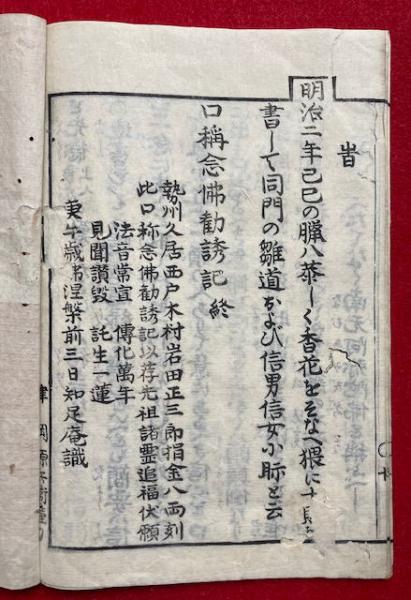 旹
明治二年己巳の臘八恭しく香花をそなへ猥に十
書して同門の雛道および信男信女小眎と云
口稱念佛勸誘記 終
勢州久居西戸木村岩田正三郎捐金八両刻
此口称念佛勸誘記以荐先祖諸霊追福伏願
法音常宣 傳化萬年
見聞讃毀 託生一蓮
庚午歳第涅槃前三日知足庵識
津 岡